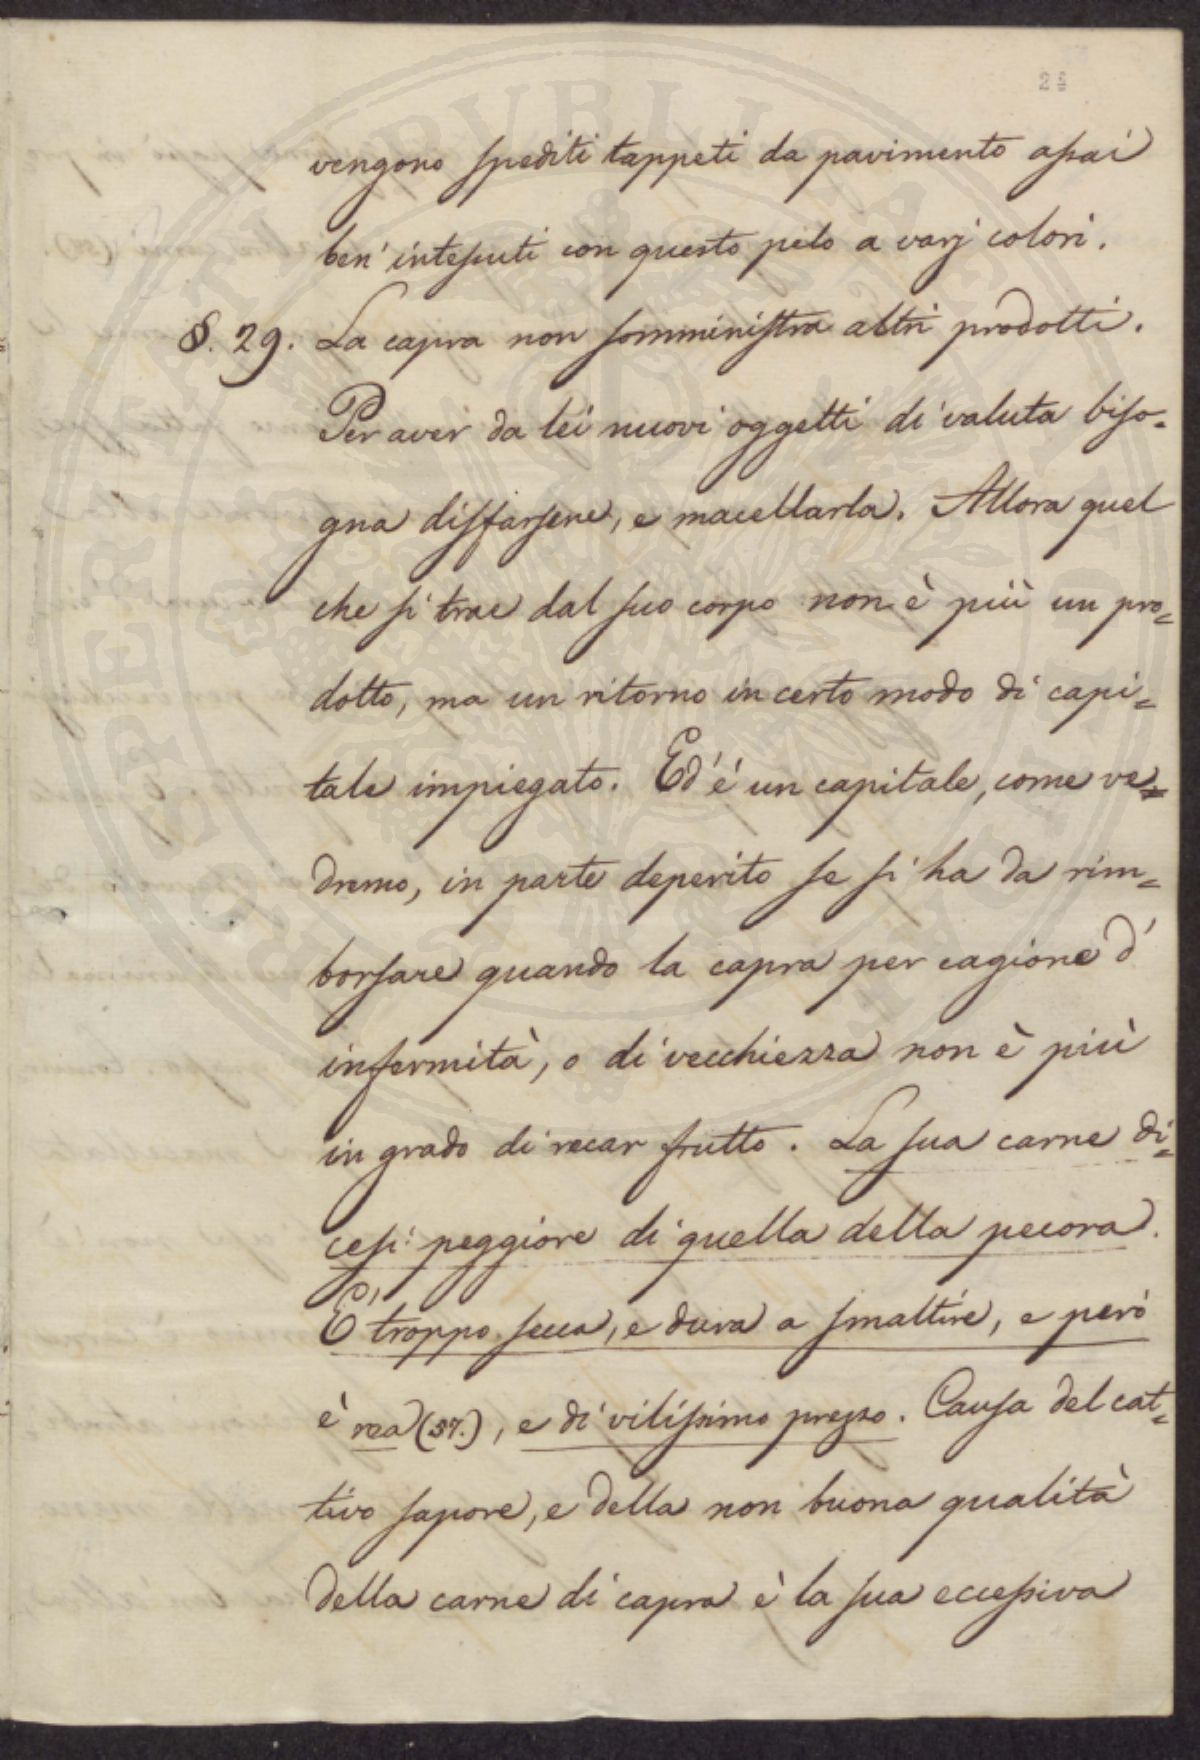 28
vengono spediti tappeti da pavimento assai
ben' intessuti con questo pelo a varj colori.
§. 29. La capra non somministra altri prodotti.
Per aver da lei nuovi oggetti di valuta biso=
gna disfarsene, e macellarla. Allora quel
che si trae dal suo corpo non è più un pro=
dotto, ma un ritorno in certo modo di capi=
tale impiegato. Ed' é un capitale, come ve=
dremo, in parte deperito se si ha da rim=
borsare quando la capra per cagione d'
infermità, o di vecchiezza non è più
in grado di recar frutto. La sua carne di=
cesi peggiore di quella della pecora.
E' troppo secca, e dura a smaltire, e però
è rea (57.), e di vilissimo prezzo. Causa del cat=
tivo sapore, e della non buona qualità
della carne di capra è la sua eccessiva